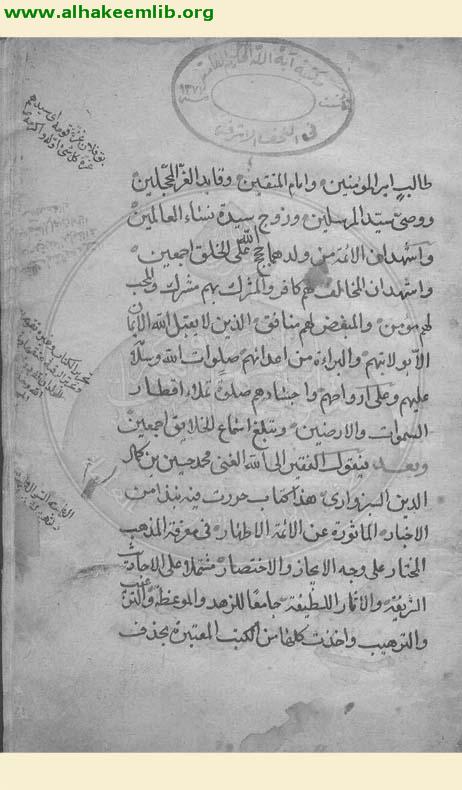 www.alhakeemlib.org
مكتبة آية الله الحكيم العامة
في النجف الاشرف
طالب امير المومنين وامام المتقين وقايد الغر المحجلين
ووصي سيد المرسلين وزوج سيدة نساء العالمين
واشهد ان الائمة من ولدهما حجج الله على الخلق اجمعين
واشهد ان المخالف لهم كافر والمشرك بهم مشرك والمحب
لهم مومن والمبغض لهم منافق الذين لا يقبل الله الايمان
الا بولايتهم والبراءة من اعدائهم صلوات الله وسلامه
عليهم وعلى ارواحهم واجسادهم صلوة تملاء اقطار
السموات والارضين وتبلغ اسماع الخلايق اجمعين
وبعد فيقول الفقير الى الله الغني محمد حسين بن كمال
الدين السبزواري هذا كتاب حررت فيه نبذا من
الاخبار الماثورة عن الائمة الاطهار في معرفة المذهب
المختار على وجه الايجاز والاختصار مشتملا على الاحاديث
الشريفة والاثار اللطيفة جامعا للزهد والموعظة والترغيب
والترهيب واخذت كلها من الكتب المعتبرة بحذف